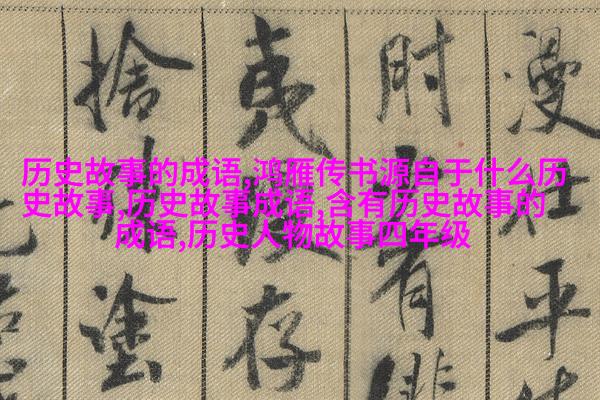 历史故事的成语,鸿雁传书源自于什么历
史故事,历史故事成语,含有历史故事的
成语,历史人物故事四年级
漫仕平
肘有俳
夷存
捨塗